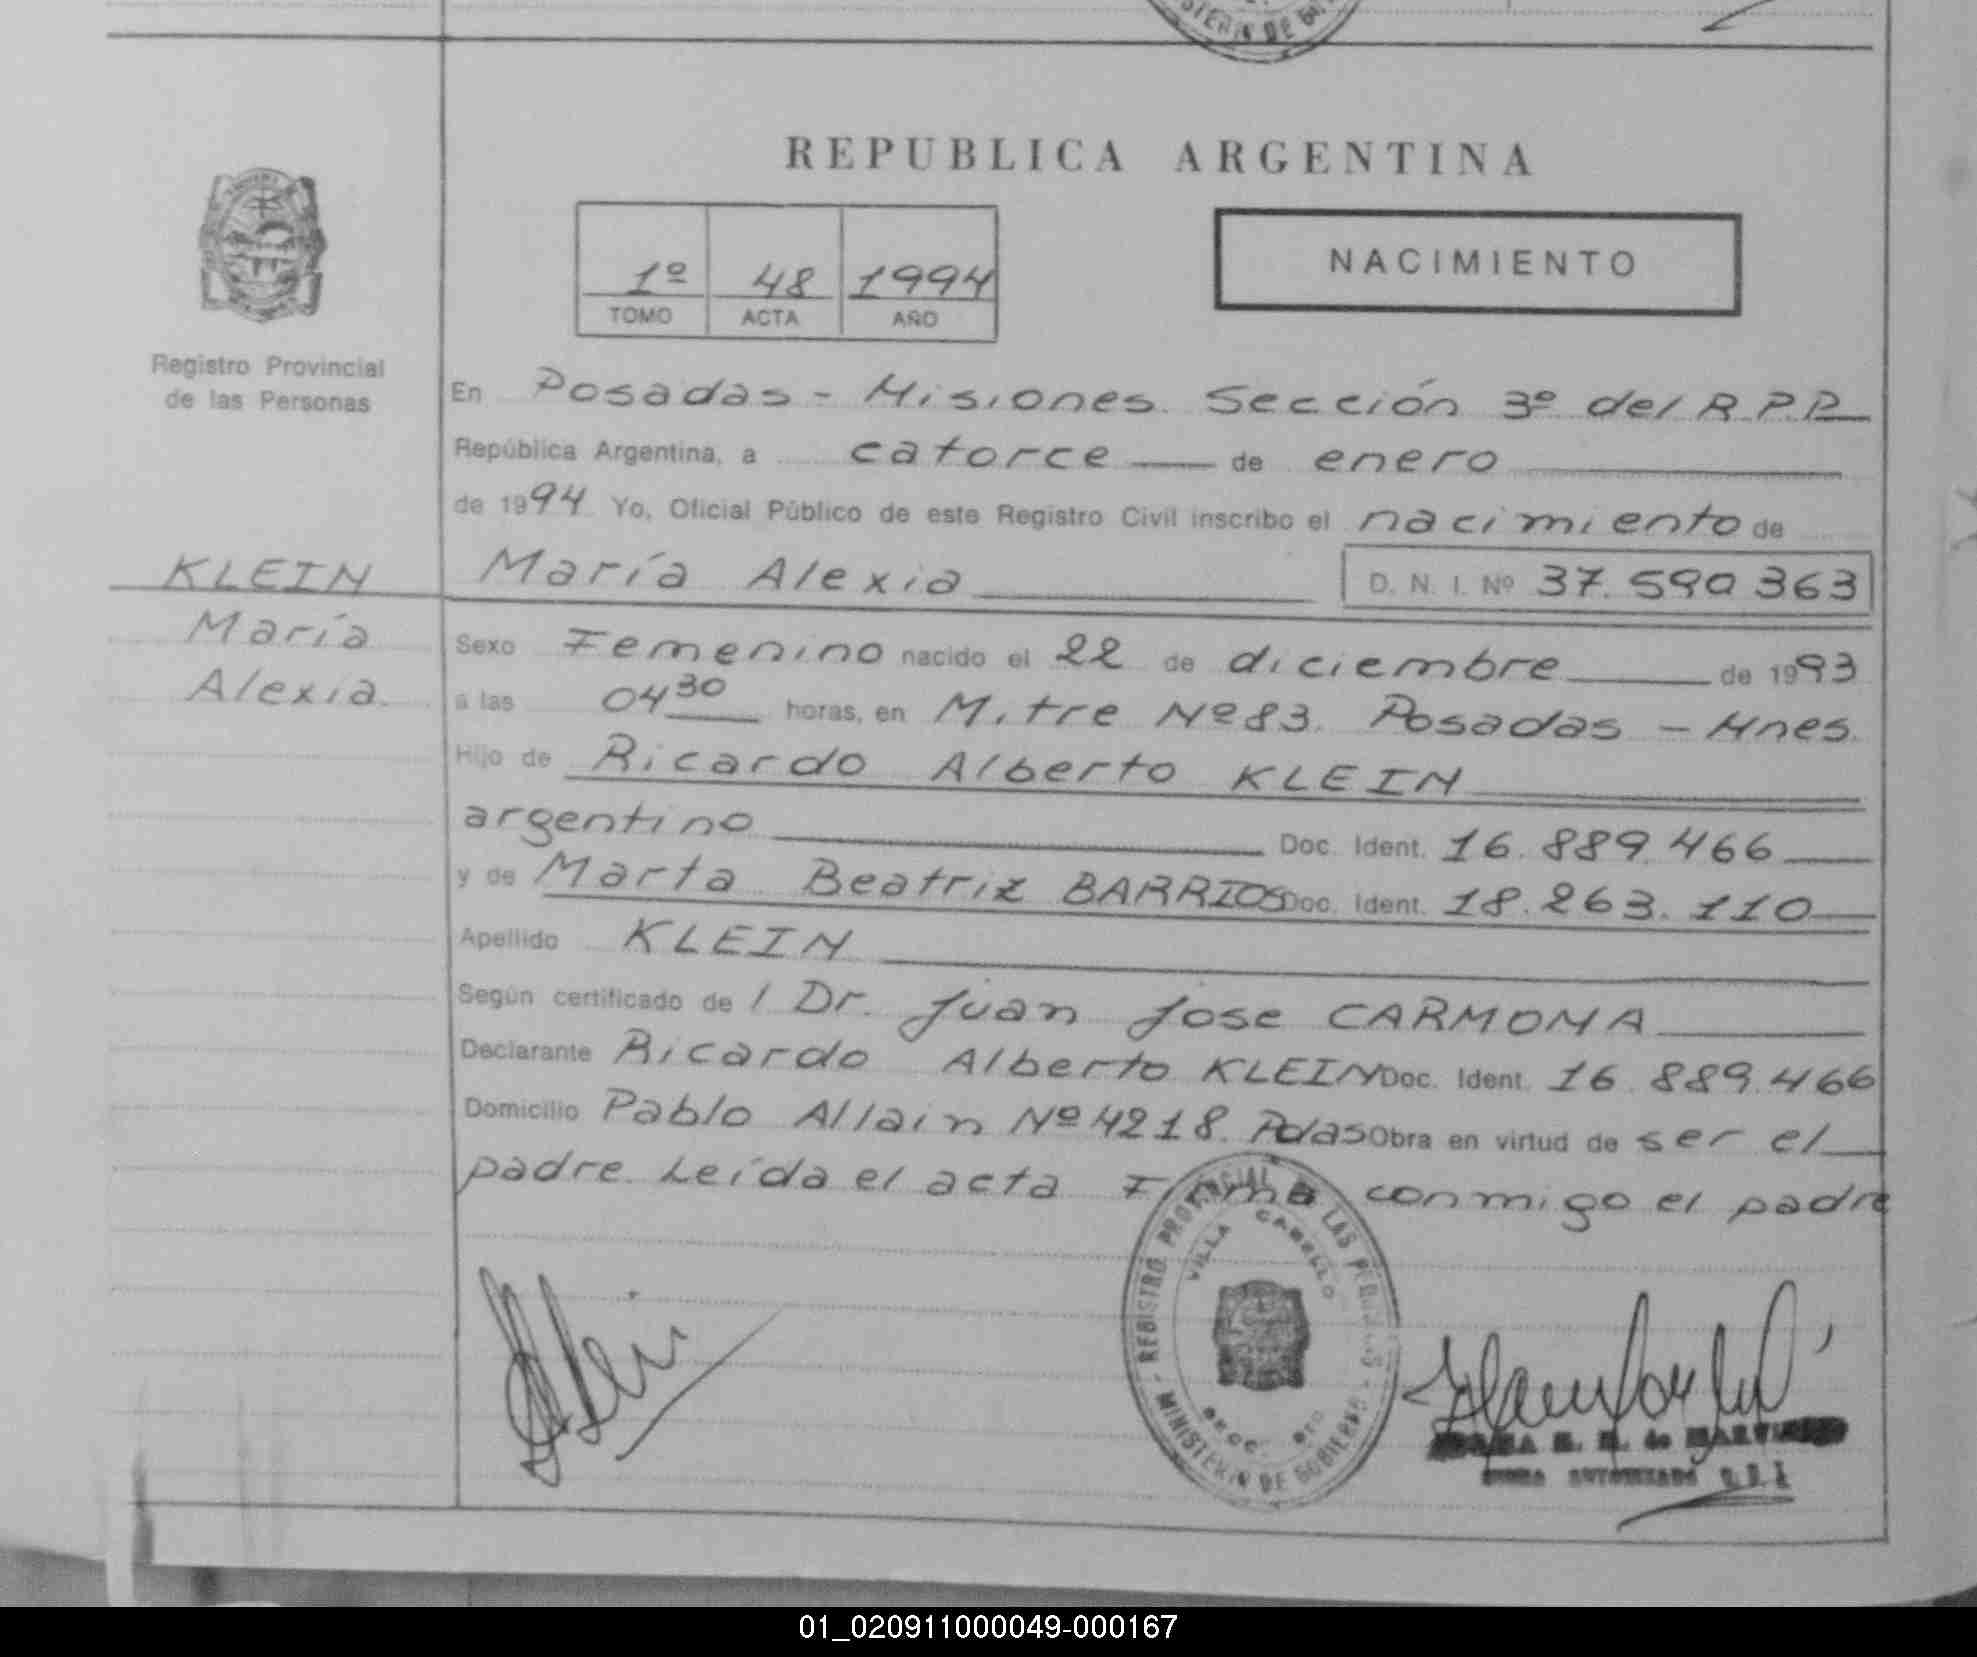 REPUBLICA ARGENTINA
1º 48 1994
TOMO ACTA AÑO
NACIMIENTO
Registro Provincial
de las Personas
KLEIN
María
Alexia.
En Posadas - Misiones. Sección 3º del R.P.P.
República Argentina, a catorce de enero
de 1994 Yo, Oficial Público de este Registro Civil inscribo el nacimiento de
María Alexia D. N. I. Nº 37.590363
Sexo Femenino nacido el 22 de diciembre de 1993
a las 04 30 horas, en Mitre Nº 83. Posadas - Mnes.
Hijo de Ricardo Alberto KLEIN
argentino Doc. Ident. 16.889.466
y de Marta Beatriz BARRIOS Doc. Ident. 18.263.110
Apellido KLEIN
Según certificado de / Dr. Juan Jose CARMONA
Declarante Ricardo Alberto KLEIN Doc. Ident. 16.889.466
Domicilio Pablo Allain Nº 4218. Pdas Obra en virtud de ser el
padre. Leída el acta Firma conmigo el padre
REGISTRO PROVINCIAL DE LAS PERSONAS
VILLA CABELLO
MINISTERIO DE GOBIERNO
01_020911000049-000167